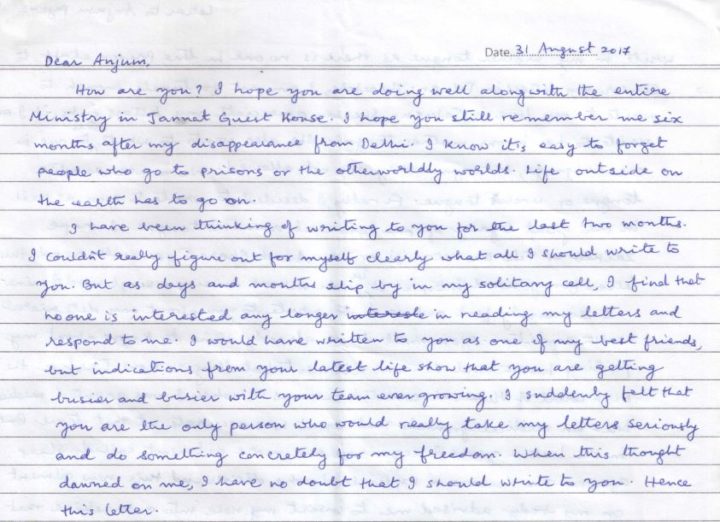 Date 31 August 2017
Dear Anjum,
How are you? I hope you are doing well alongwith the entire
Ministry in Jannat Guest House. I hope you still remember me six
months after my disappearance from Delhi. I know its, easy to forget
people who go to prisons or the otherworldly worlds. Life outside on
the earth has to go on.
I have been thinking of writing to you for the last two months.
I couldn't really figure out for myself clearly what all I should write to
you. But as days and months slip by in my solitary cell, I find that
no one is interested any longer in reading my letters and
respond to me. I would have written to you as one of my best friends,
but indications from your latest life show that you are getting
busier and busier with your team ever growing. I suddenly felt that
you are the only person who would really take my letters seriously
and do something concretely for my freedom. When this thought
dawned on me, I have no doubt that I should write to you. Hence
this letter.